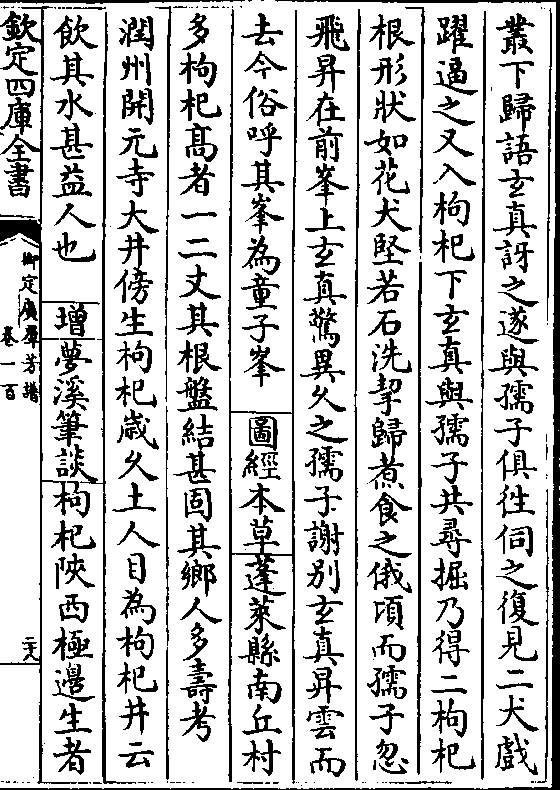 叢下歸語玄真訝之遂與孺子俱徃伺之復見二犬戲
躍逼之又入枸杞下玄真與孺子共尋掘乃得二枸杞
根形狀如花犬堅若石洗挈歸煮食之俄頃而孺子忽
飛昇在前峯上玄真驚異久之孺子謝別玄真昇雲而
去今俗呼其峯為童子峯 圖經本草蓬萊縣南丘村
多枸杞髙者一二丈其根盤結甚固其鄉人多壽考
潤州開元寺大井傍生枸杞嵗久土人目為枸杞井云
飲其水甚益人也 增夢溪筆談枸杞陜西極邊生者
欽定四庫全書
御定廣羣芳譜
卷一百